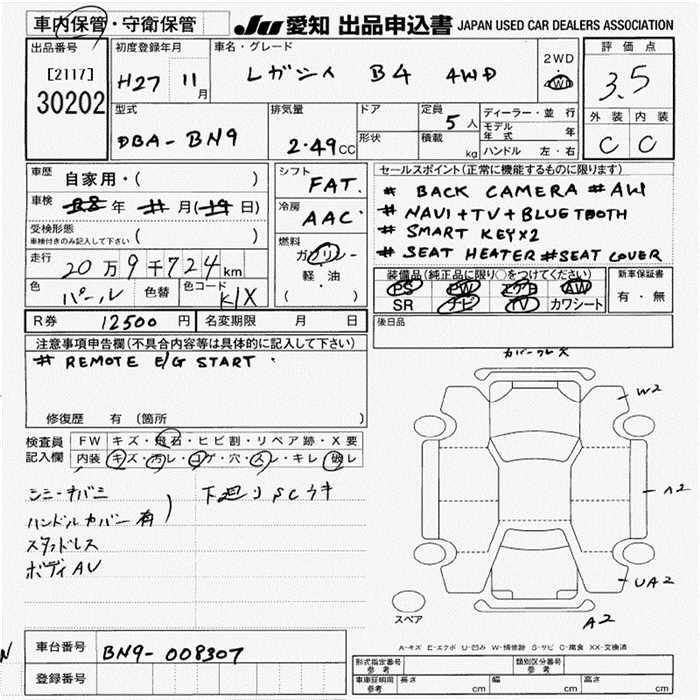 車内保管・守衛保管
JU 愛知 出品申込書 JAPAN USED CAR DEALERS ASSOCIATION
出品番号
[2117]
30202
初度登録年月
H27 11月
車名・グレード
レガシィ B4 4WD
2WD
4WD
評価点
3.5
外装 内装
C C
型式
DBA-BN9
排気量
2.49cc
ドア
形状
定員
5人
積載
kg
ディーラー・並行
モデル年式 年
ハンドル 左・右
車歴
自家用・( )
車検
年 月( 日)
受検形態
車検付きのみ記入して下さい ( )
走行
20万9千724km
色
パール
色替
色コード
K1X
シフト
FAT
冷房
AAC
燃料
ガソリン
軽・油
( )
セールスポイント(正常に機能するものに限ります)
# BACK CAMERA # AW
# NAVI+TV+BLUETOOTH
# SMART KEYX2
# SEAT HEATER #SEAT COVER
装備品(純正品に限り○をつけてください)
PS PW エアB AW
SR ナビ TV カワシート
新車保証書
有・無
後日品
R券 12500円
名変期限 月 日
注意事項申告欄(不具合内容等は具体的に記入して下さい)
# REMOTE E/G START
修復歴 有 〔箇所 〕
検査員記入欄
FW キズ・飛石・ヒビ割・リペア跡・X要
内装 キズ・汚レ・コゲ・穴・スレ・キレ・破レ
ハンドルカバー有
スタッドレス
ボディAU
下廻りSCウキ
W2
A2
UA2
A2
スペア
A-キズ E-エクボ U-凹み W-補修跡 S-サビ C-腐食 XX-交換済
車台番号
BN9-008307
登録番号
形式指定番号 参考
類別区分番号 参考
車庫証明用 参考
長さ cm
幅 cm
高さ cm